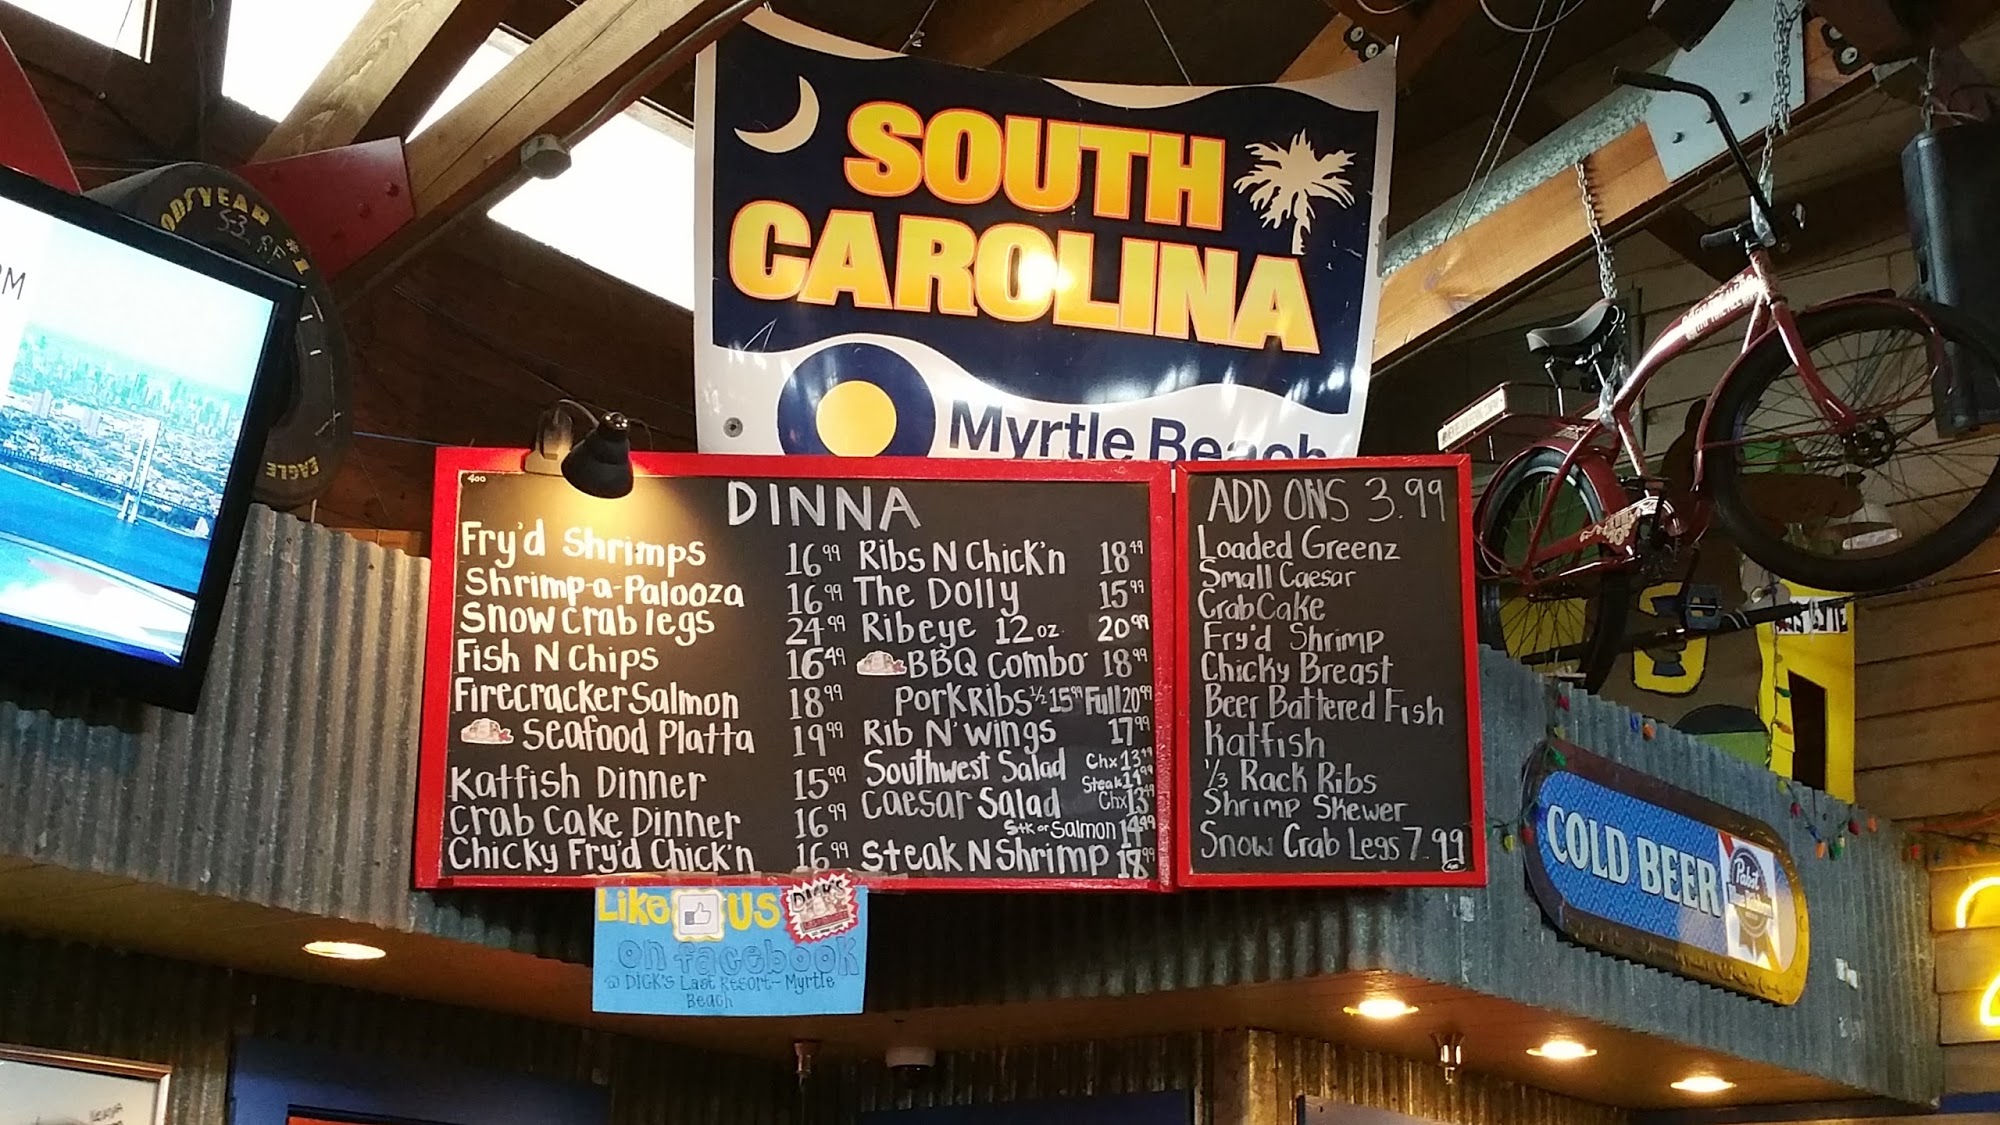 SOUTH
CAROLINA
Myrtle Beach
PM
GOODYEAR #1
EAGLE
400
DINNA
Fry'd Shrimps 16.99
Shrimp-a-Palooza 16.99
Snow crab legs 24.99
Fish N Chips 16.49
Firecracker Salmon 18.99
Seafood Platta 19.99
Katfish Dinner 15.99
Crab Cake Dinner 16.99
Chicky Fry'd Chick'n 16.99
Ribs N Chick'n 18.49
The Dolly 15.99
Ribeye 12 oz. 20.99
BBQ Combo 18.99
Pork Ribs ½ 15.99 Full 20.99
Rib N' Wings 17.99
Southwest Salad Chx 13.49
Steak 14.99
Caesar Salad Chx 13.49
Stk or Salmon 14.99
Steak N Shrimp 18.99
ADD ONS 3.99
Loaded Greenz
Small Caesar
Crab Cake
Fry'd Shrimp
Chicky Breast
Beer Battered Fish
Katfish
⅓ Rack Ribs
Shrimp Skewer
Snow Crab Legs 7.99
Like US
DICK'S
on facebook
@ DICK'S Last Resort~ Myrtle
Beach
COLD BEER
Pabst
Blue Ribbon